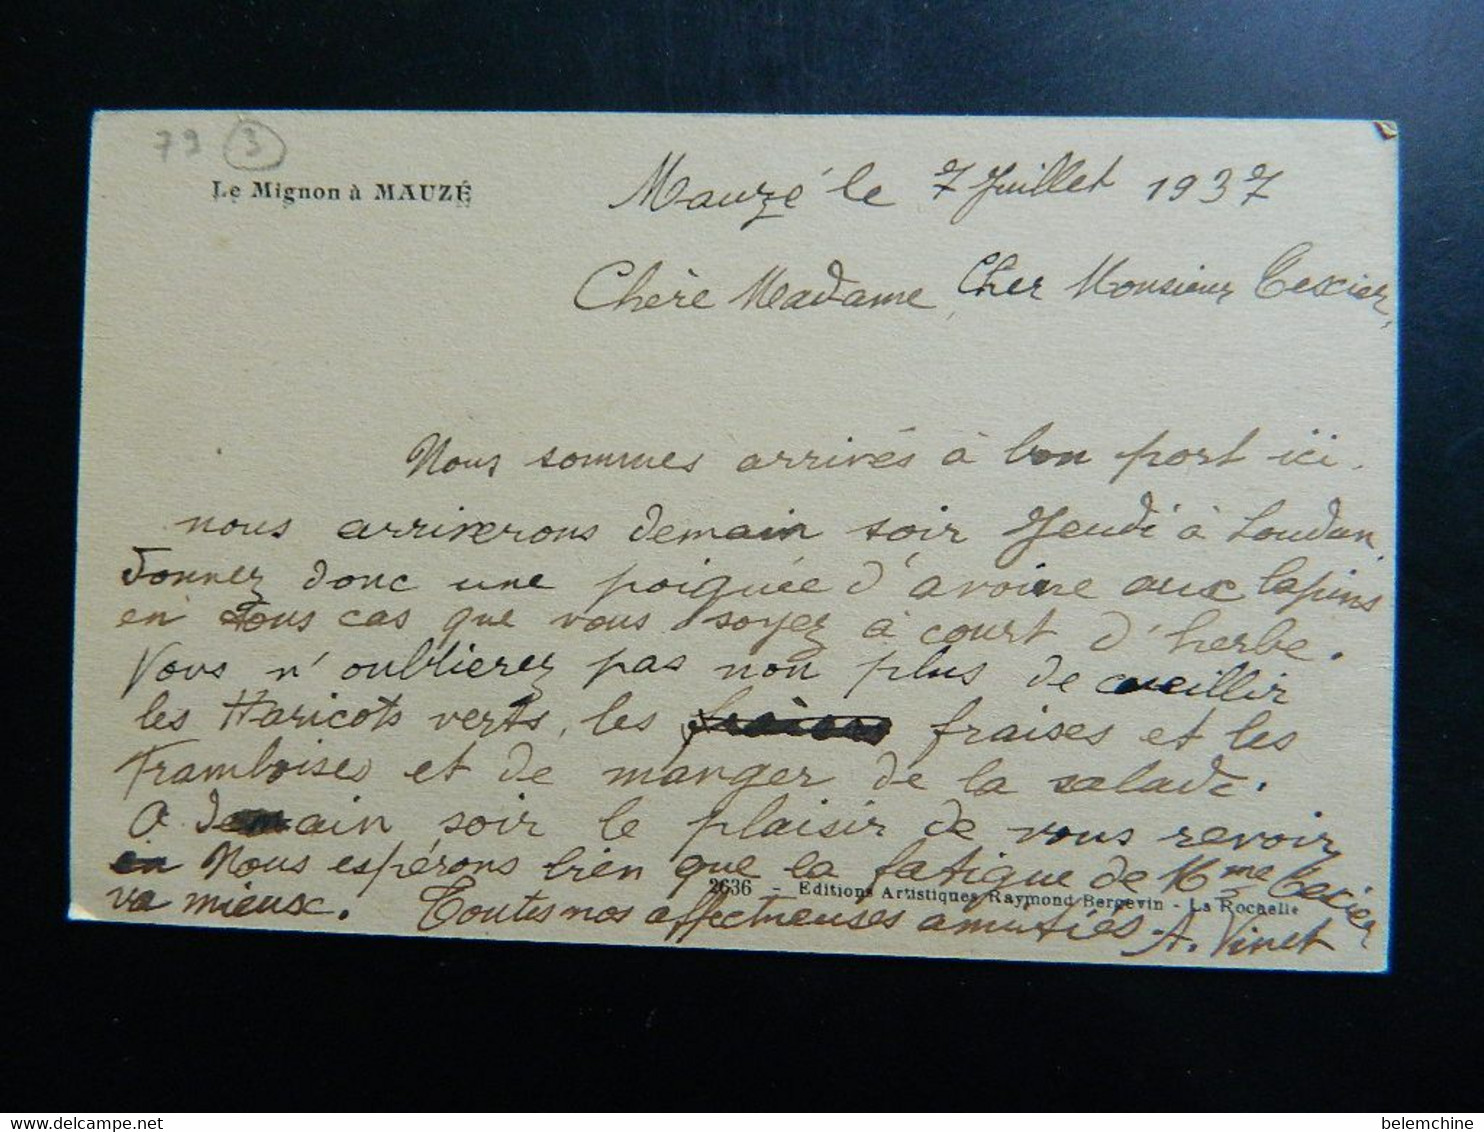 79 3
Le Mignon à MAUZÉ
Mauzé le 7 Juillet 1937
Chère Madame, Cher Monsieur Texier,
Nous sommes arrivés à bon port ici.
nous arriverons demain soir Jeudi à Loudun.
donnez donc une poignée d'avoine aux lapins
en tous cas que vous soyez à court d'herbe.
Vous n'oublierez pas non plus de cueillir
les Haricots verts, les fraises et les
Framboises et de manger de la salade.
A demain soir le plaisir de vous revoir
Nous espérons bien que la fatigue de Mme Texier
2636 - Editions Artistiques Raymond Bergevin - La Rochelle
va mieux. Toutes nos affectueuses amitiés. A. Vinet
belemchine